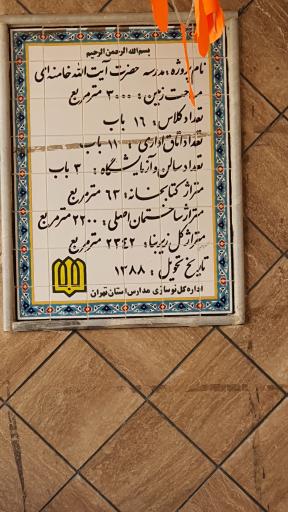 بسم الله الرحمن الرحیم
نام پروژه: مدرسه حضرت آیت الله خامنه‌ای
مساحت زمین: ۳۰۰۰ مترمربع
تعداد کلاس: ۱۶ باب
تعداد اتاق اداری: ۱۱ باب
تعداد سالن و آزمایشگاه: ۳ باب
متراژ کتابخانه: ۶۳ مترمربع
متراژ ساختمان اصلی: ۲۲۰۰ مترمربع
متراژ کل زیربنا: ۲۳۴۲ مترمربع
تاریخ تحویل: ۱۳۸۸
اداره کل نوسازی مدارس استان تهران